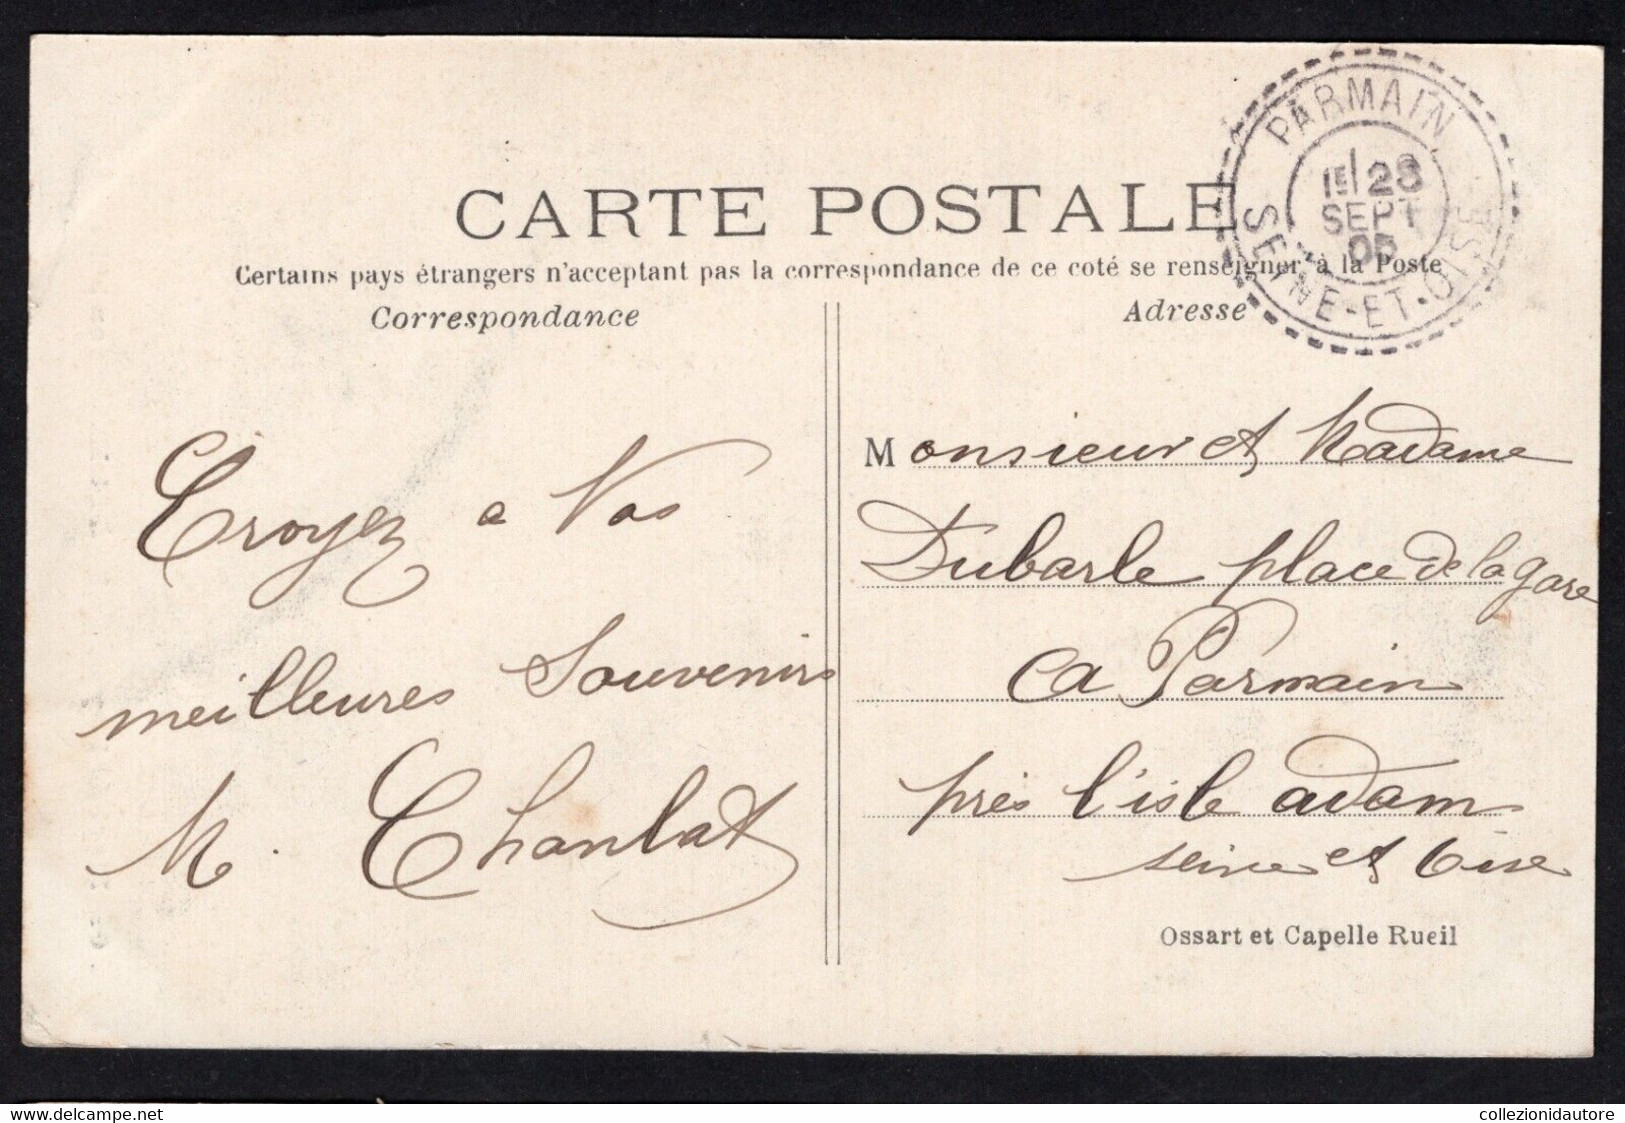 CARTE POSTALE
Certains pays étrangers n'acceptant pas la correspondance de ce coté se renseigner à la Poste
Correspondance
Adresse
PARMAIN
1E 28
SEPT
05
SEINE-ET-OISE
Croyez a Vos
meilleures Souvenirs
M. Chanlat
Monsieur et Madame
Dubarle place de la gare
a Parmain
près l'isle adam
seine et Oise
Ossart et Capelle Rueil
www.delcampe.net
collezionidautore